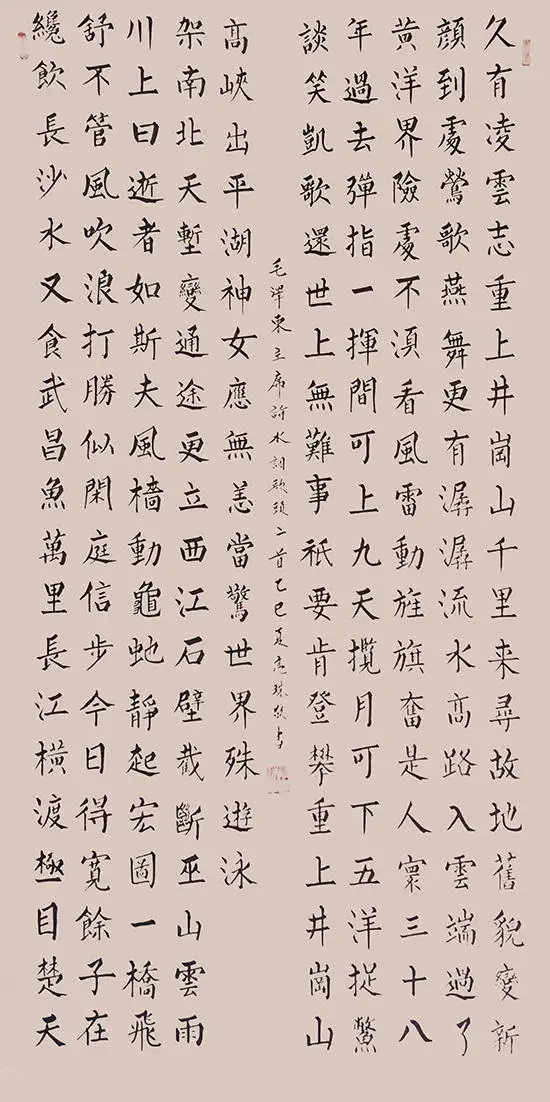 久有凌雲志重上井崗山千里来尋故地舊貌變新
顔到處鶯歌燕舞更有潺潺流水高路入雲端過了
黄洋界險處不須看風雷動旌旗奮是人寰三十八
年過去彈指一揮間可上九天攬月可下五洋捉鱉
談笑凱歌還世上無難事祇要肯登攀重上井崗山
纔飲長沙水又食武昌魚萬里長江橫渡極目楚天
舒不管風吹浪打勝似閑庭信步今日得寬餘子在
川上曰逝者如斯夫風檣動龜虵靜起宏圖一橋飛
架南北天塹變通途更立西江石壁截斷巫山雲雨
高峽出平湖神女應無恙當驚世界殊遊泳
毛澤東主席詩水調歌頭二首乙巳夏